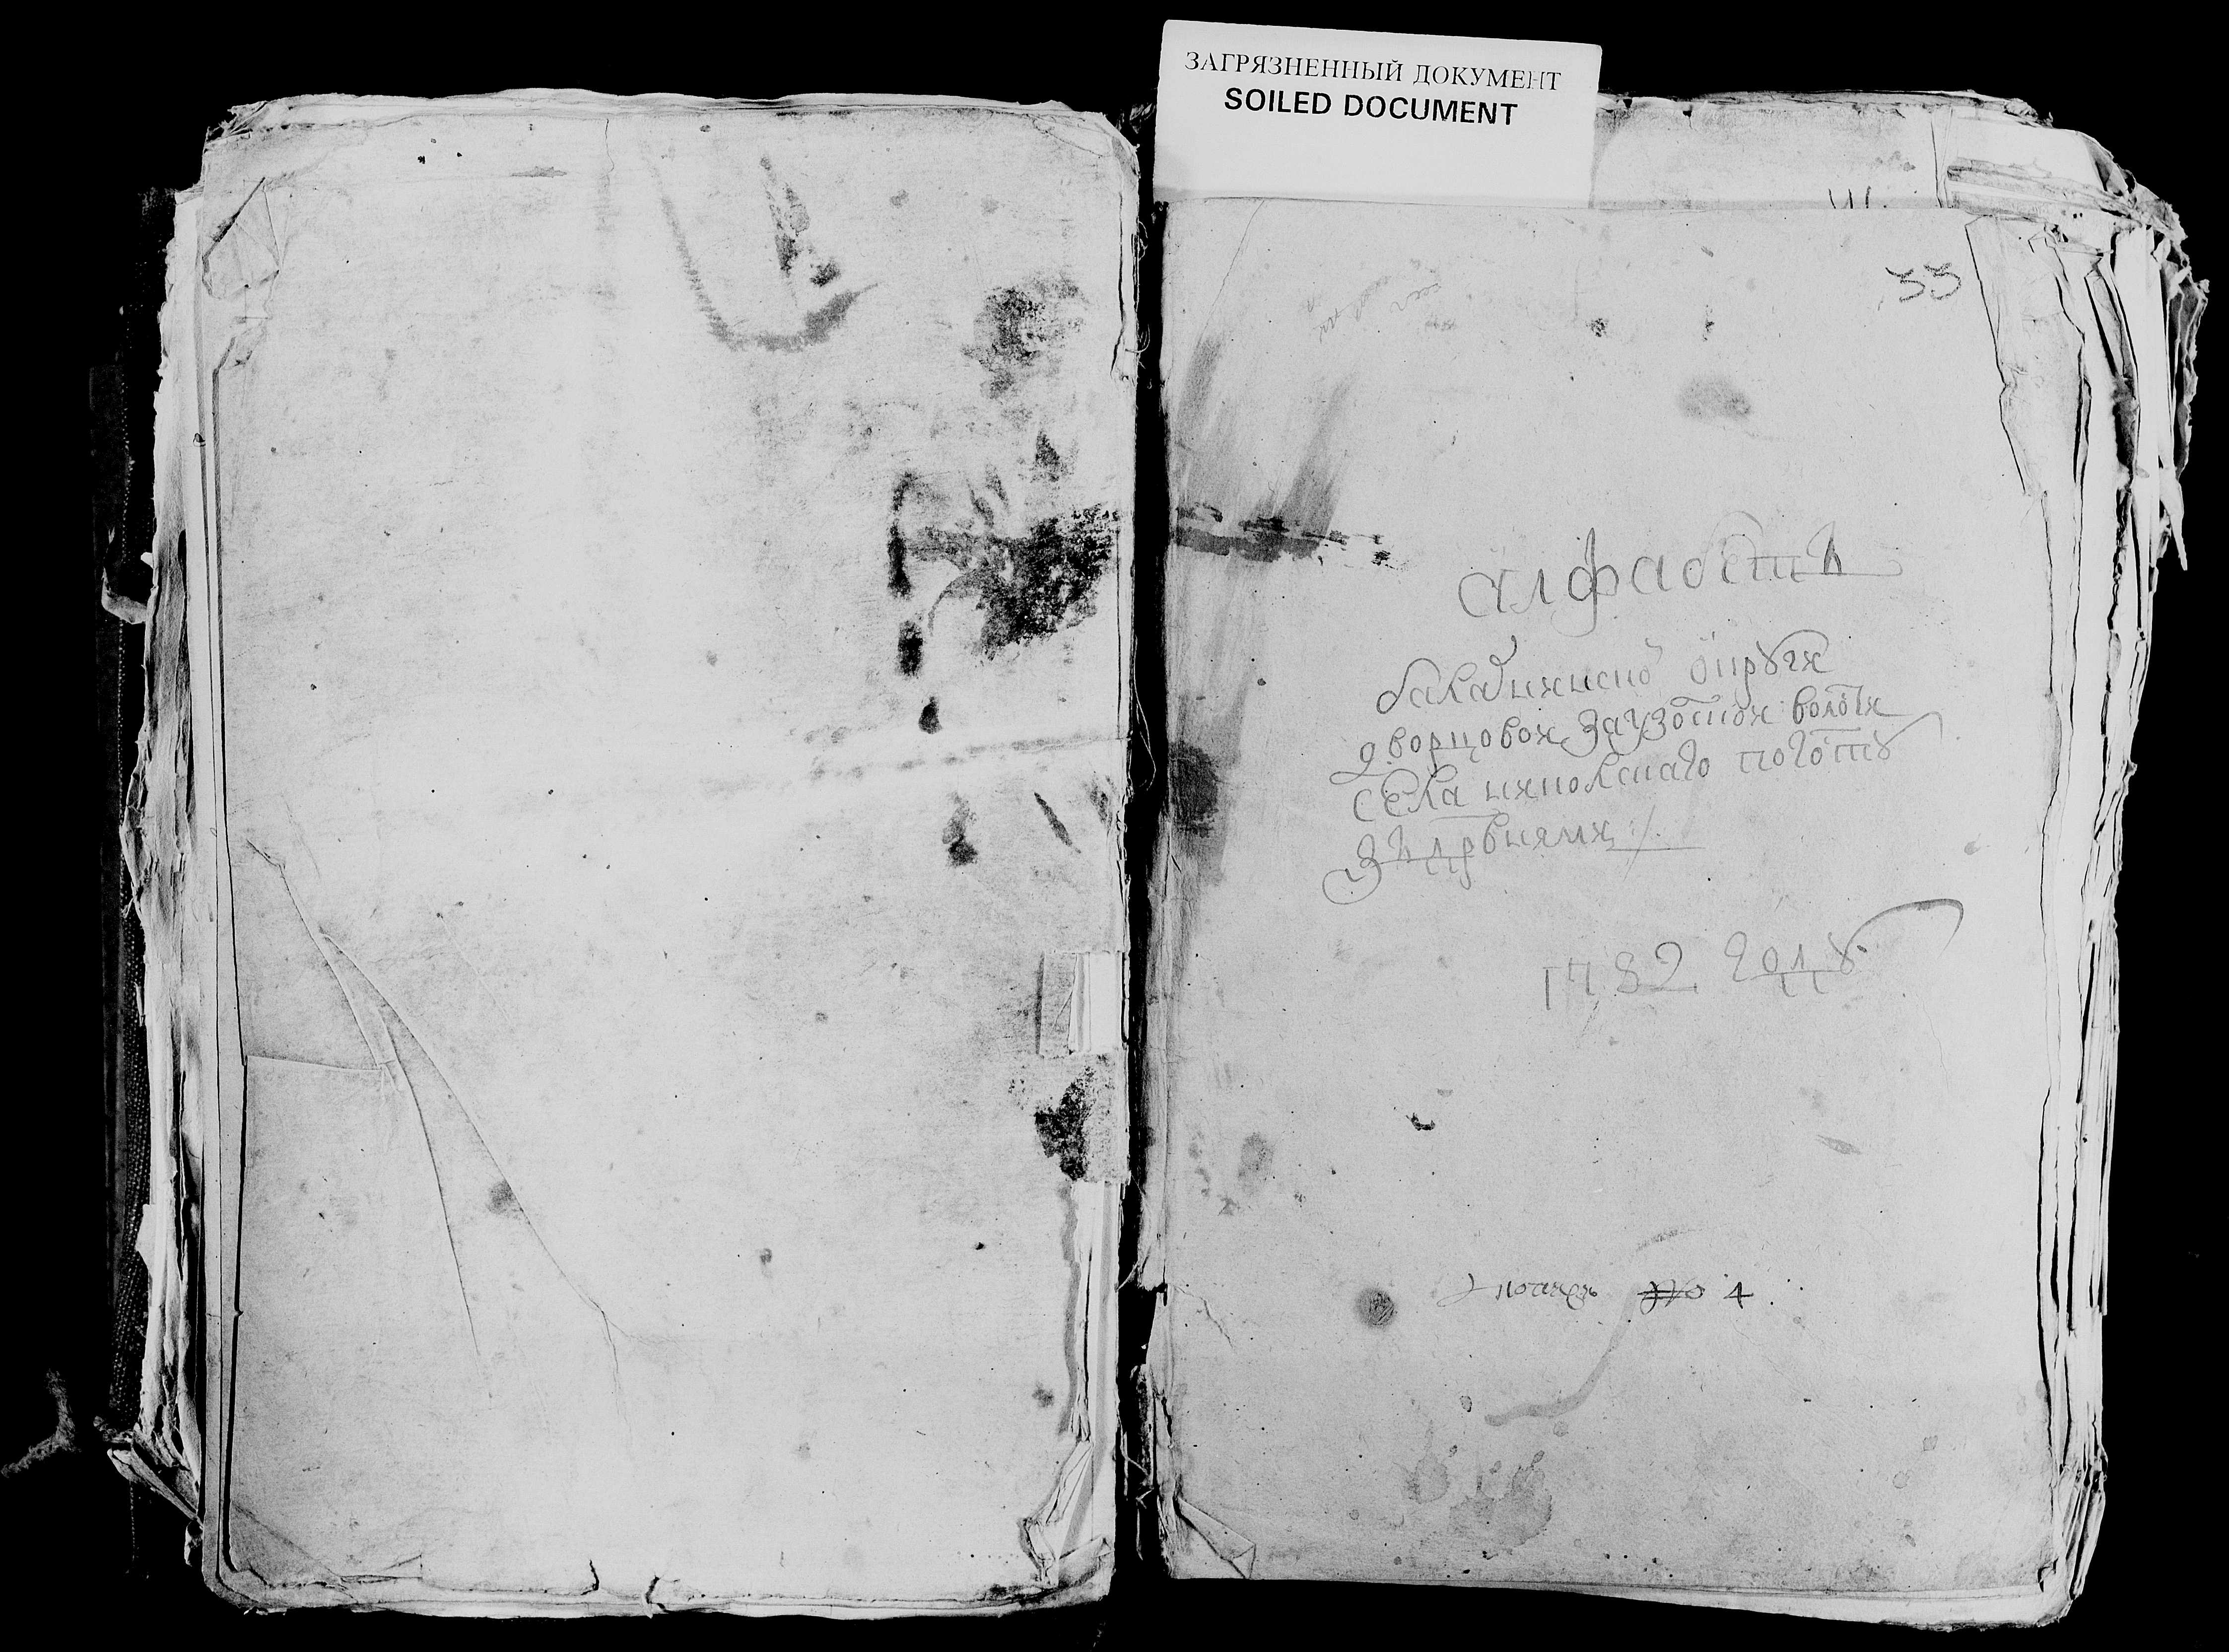 ЗАГРЯЗНЕННЫЙ ДОКУМЕНТ
SOILED DOCUMENT
33
алфабетъ
балахнинской округи
дворцовой заузолской волости
села николскаго погосту
здрвнями
1782 году
№ 4